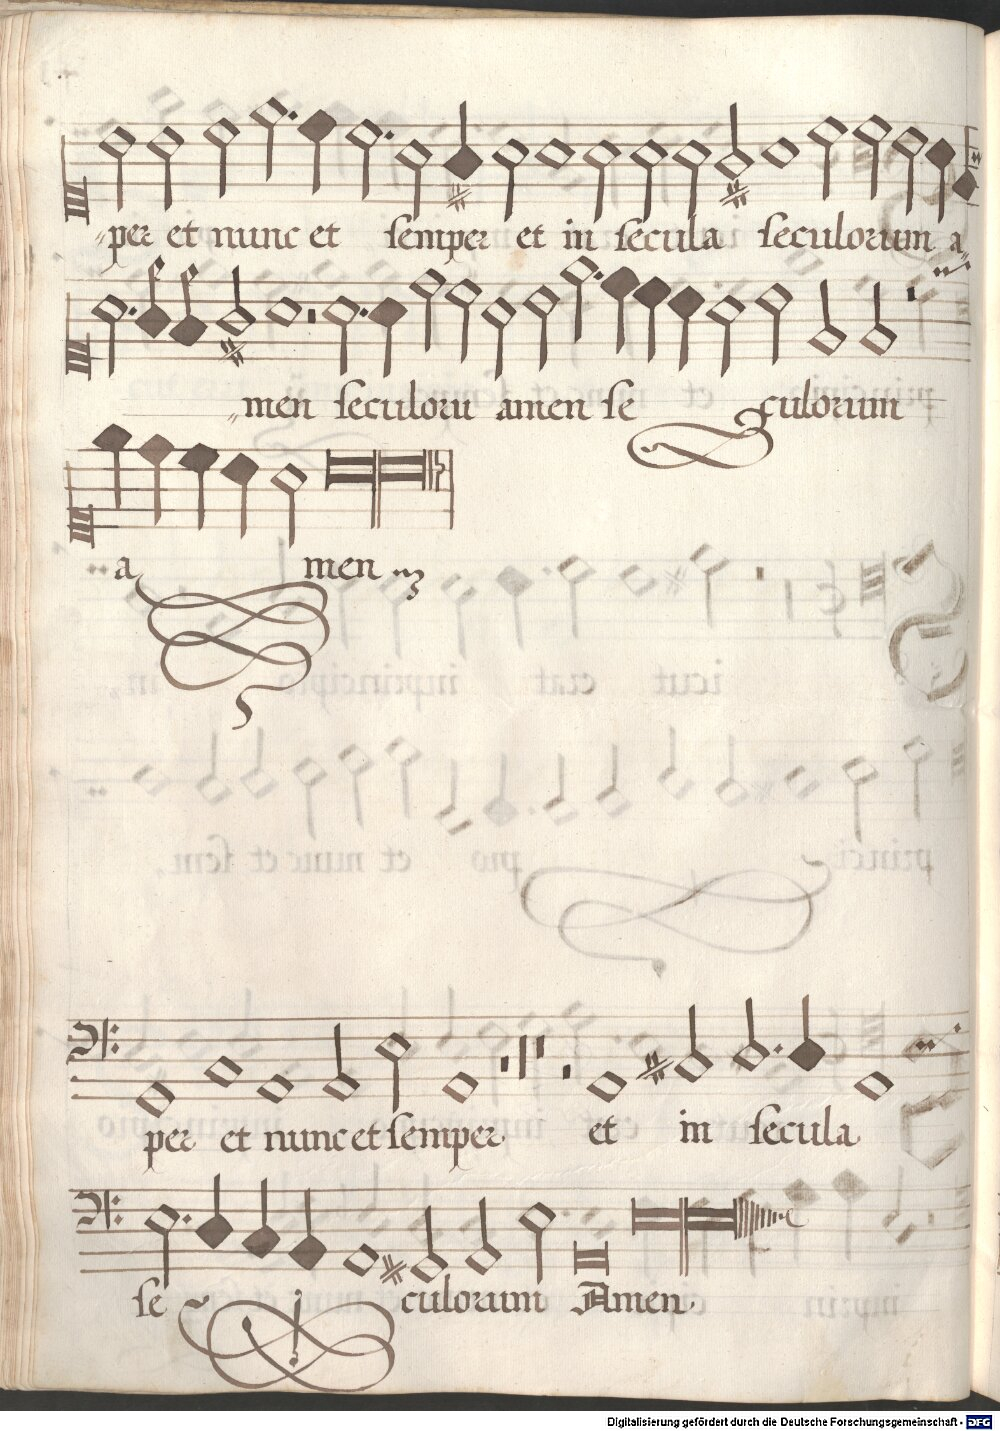 per et nunc et semper et in secula seculorum a
men seculorū amen se culorum
a men
per et nunc et semper et in secula
se culorum Amen
Digitalisierung gefördert durch die Deutsche Forschungsgemeinschaft - DFG